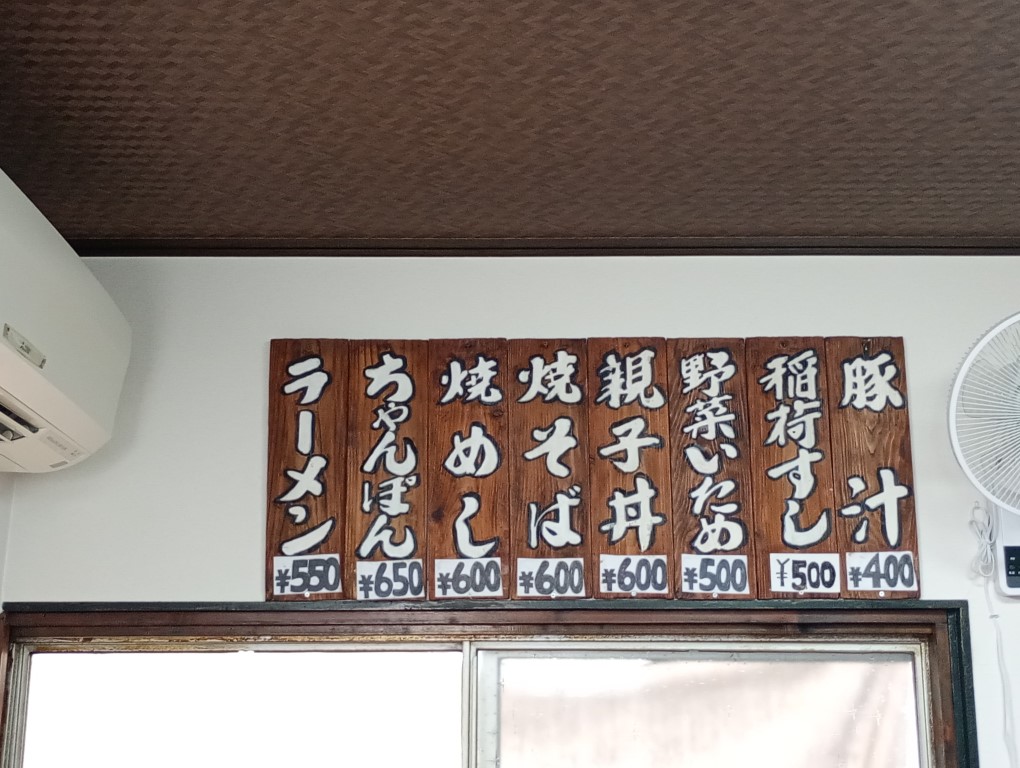 ラーメン
¥550
ちゃんぽん
¥650
焼めし
¥600
焼そば
¥600
親子丼
¥600
野菜いため
¥500
稲荷すし
¥500
豚汁
¥400